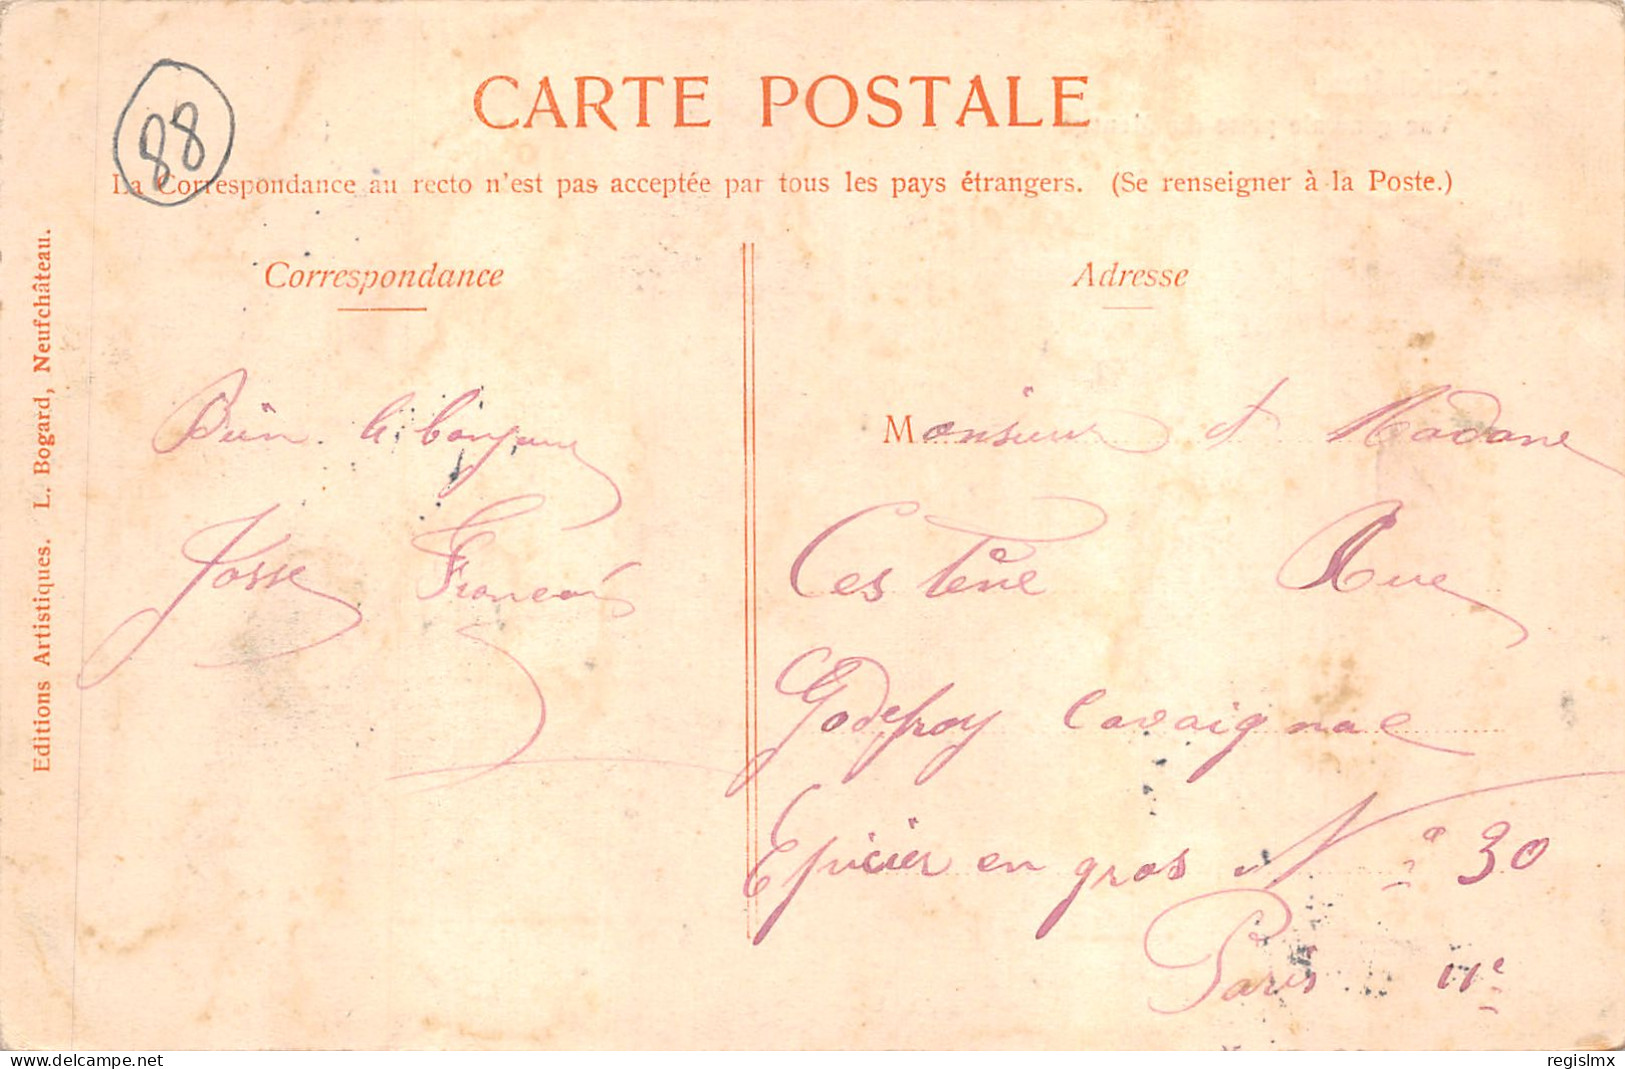 88
CARTE POSTALE
La Correspondance au recto n'est pas acceptée par tous les pays étrangers. (Se renseigner à la Poste.)
Editions Artistiques. L. Bogard, Neufchâteau.
Correspondance
Bien le bonjour
Josse François
Adresse
Monsieur et Madame
Rue
Godefroy Cavaignac
Epicier en gros N° 30
Paris 11e
delcampe.net
regislmx